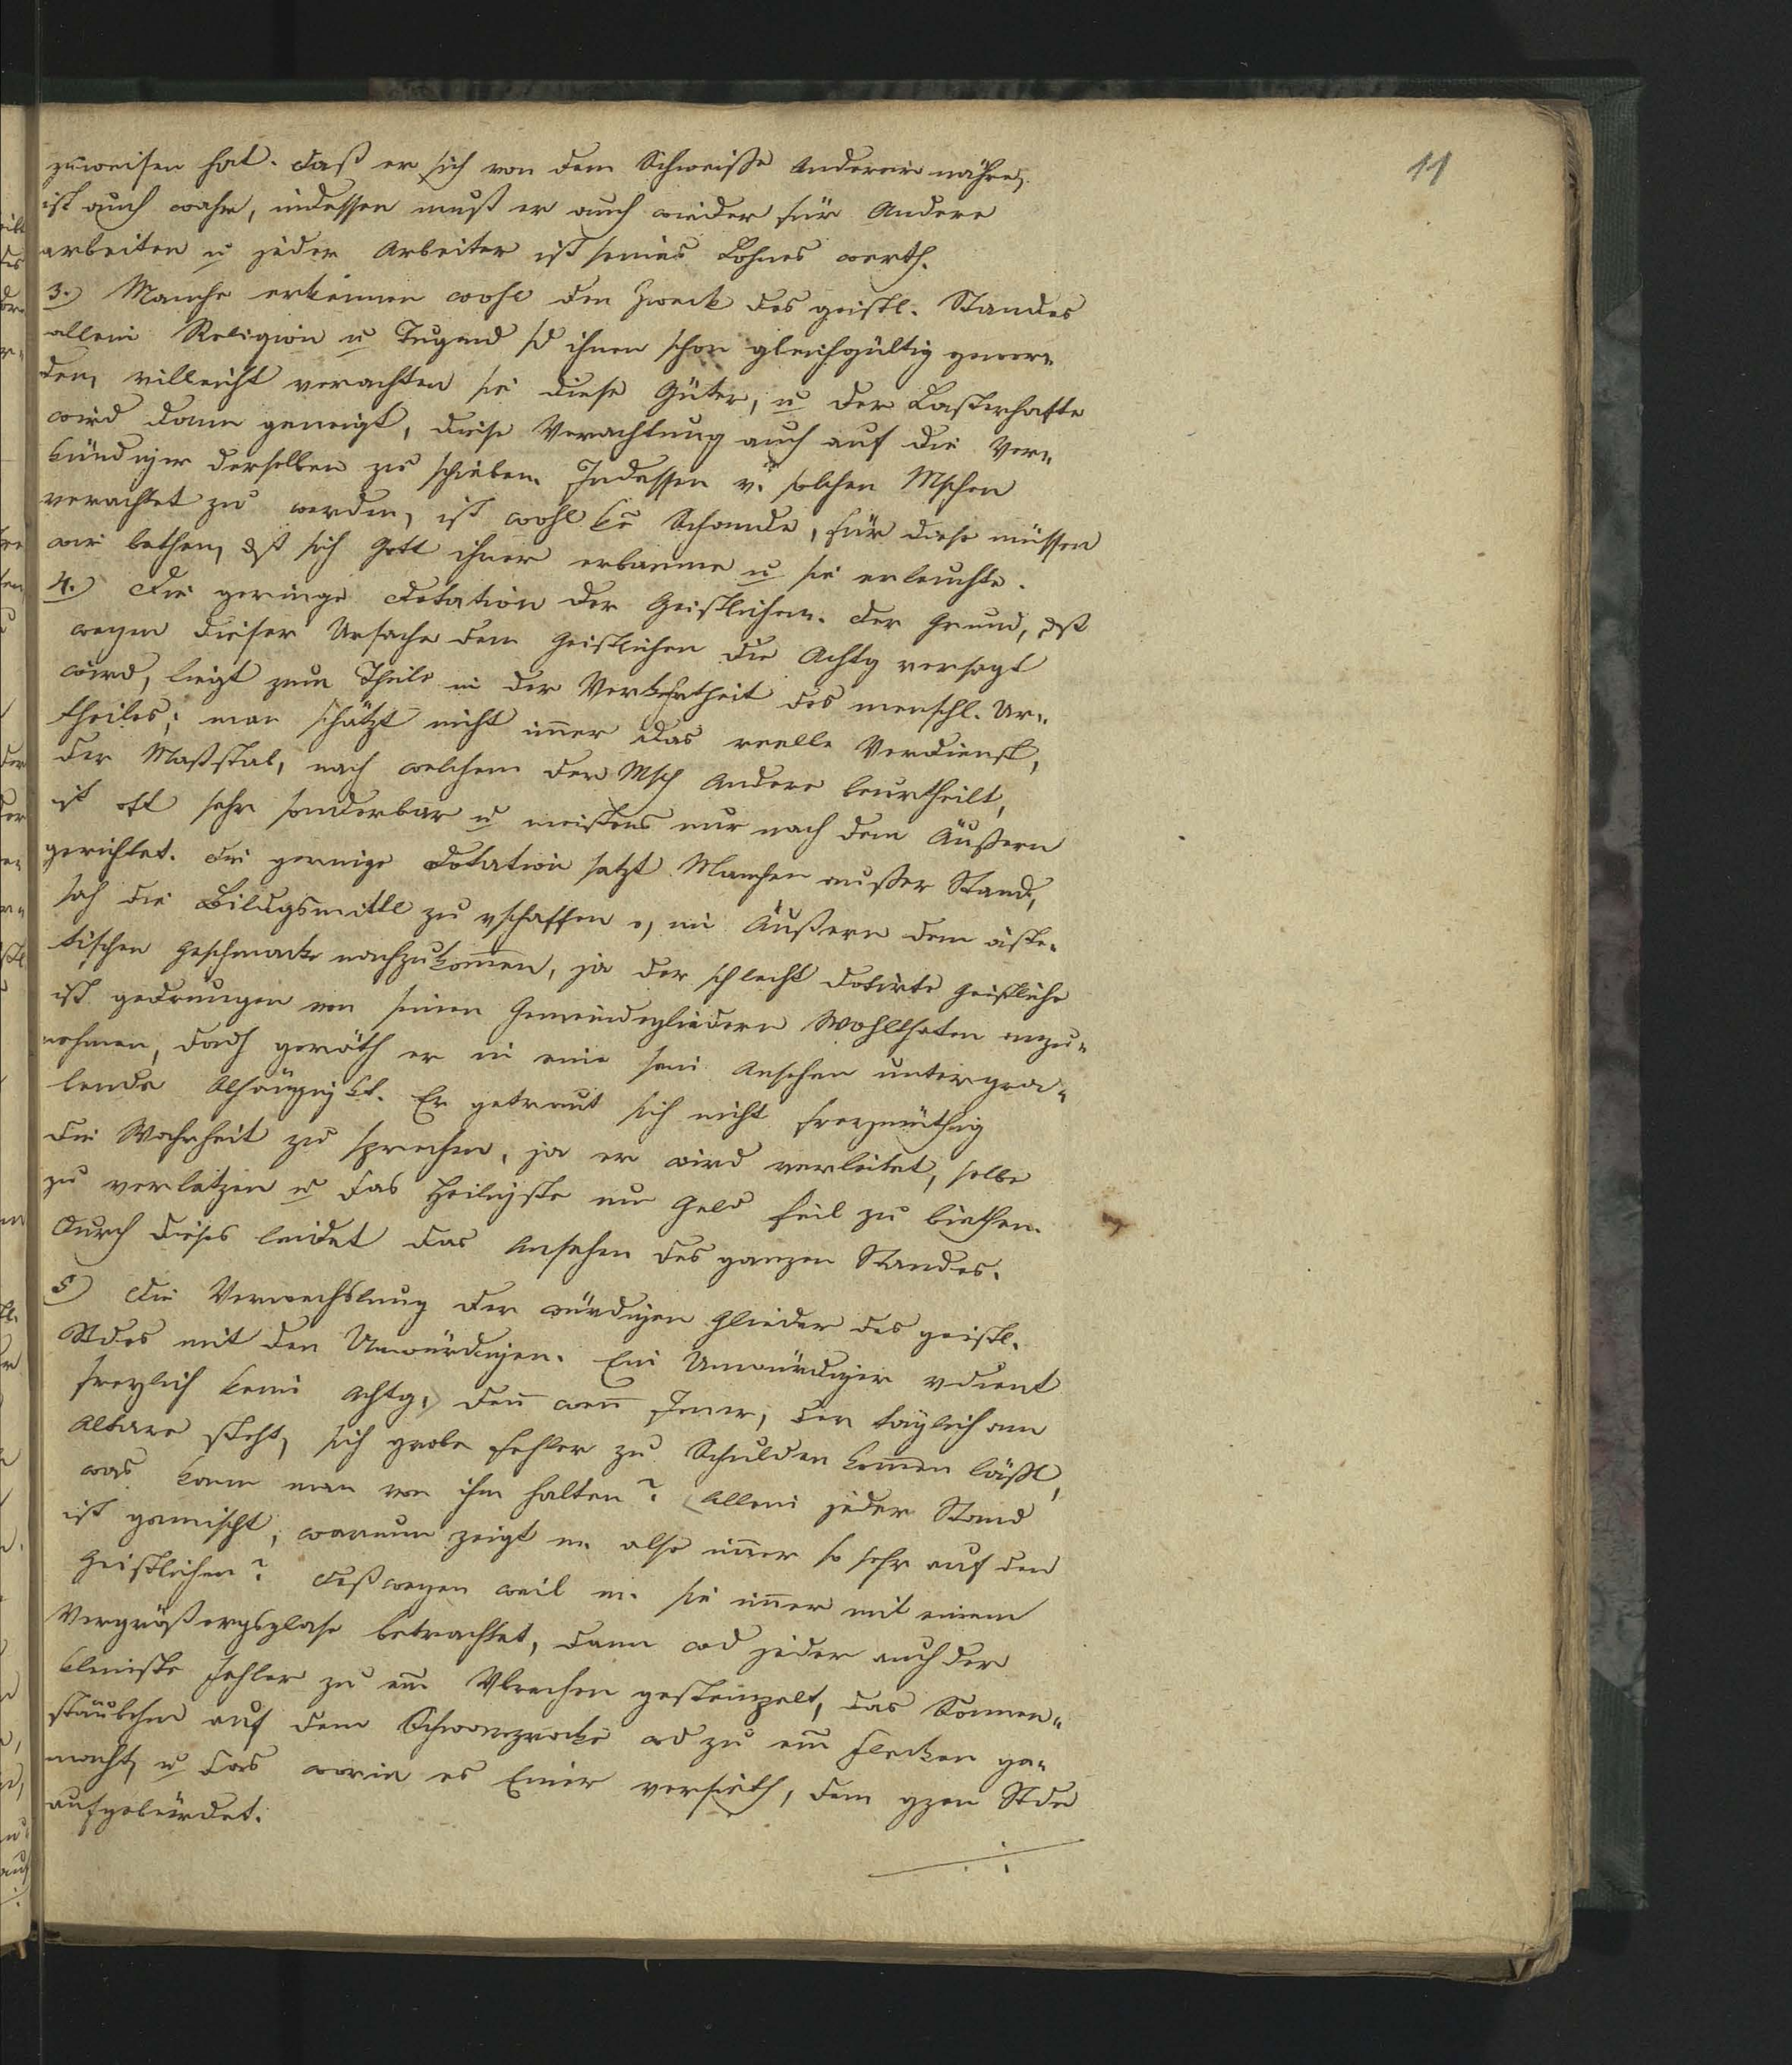 11
zuweisen hat. Daß er sich von dem Schweisse Anderer nähre,
ist auch wahr, indessen muß er auch wieder für Andere
arbeiten u jeder Arbeiter ist seines Lohnes werth.
3.) Manche erkennen wohl den Zweck des geistl. Standes
allein Religion u Tugend sd ihnen schon gleichgültig gewor„
den, villeicht verachten sie diese Güter, u der Lasterhafte
wird dann geneigt, diese Verachtung auch auf die Ver„
kündiger derselben zu schieben. Indessen v. solchen Mschen
verachtet zu werden, ist wohl kē Schande, für diese müssen
wir bethen, dß sich Gott ihner erbarme u sie erleuchte.
4.) Die geringe Dotation der Geistlichen. Der Grund, dß
wegen dieser Ursache dem Geistlichen die Achtg versagt
wird, liegt zum Theile in der Verkehrtheit des menschl. Ur„
theiles; man schätzt nicht im̄er das reelle Verdienst,
der Maßstab, nach welchem der Msch Andere beurtheilt,
ist oft sehr sonderbar u meistens nur nach dem Äußern
gerichtet. Die geringe Dotation setzt Manchen außer Stand,
sich die Bildugsmittl zu vschaffen o, im Äußern dem äste„
tischen Geschmacke nachzukom̄en, ja der schlecht dotirte Geistliche
ist gedrungen von seinen Gemeindegliedern Wohlthaten anzu„
nehmen, dadh geräth er in eine sein Ansehen untergra„
bende Abhängigkt. Er getraut sich nicht freymüthig
die Wahrheit zu sprechen, ja er wird verleitet, selbe
zu verletzen u das Heiligste um Geld feil zu biethen.
Durch dieses leidet das Ansehen des ganzen Standes.
5) Die Verwechslung der würdigen Glieder des geistl.
Stdes mit den Unwürdigen. Ein Unwürdiger vdient
freylich keine Achtg, deñ weñ Jener, der täglich am
Altare steht, sich grobe Fehler zu Schulden kom̄en läßt,
was kann man von ihm halten? Allein jeder Stand
ist gemischt, warum zeigt m. also im̄er so sehr auf den
Geistlichen? Deßwegen weil m. sie im̄er mit einem
Vergrößergsglase betrachtet, dann wd jeder auch der
kleinste Fehler zu em̄ Vbrechen gestempelt, das Sonnen„
stäubchen auf dem Schwarzrocke wd zu em̄ Flecken ge„
macht, u das worin es Einer versieth, dem gzen Stde
aufgebürdet.